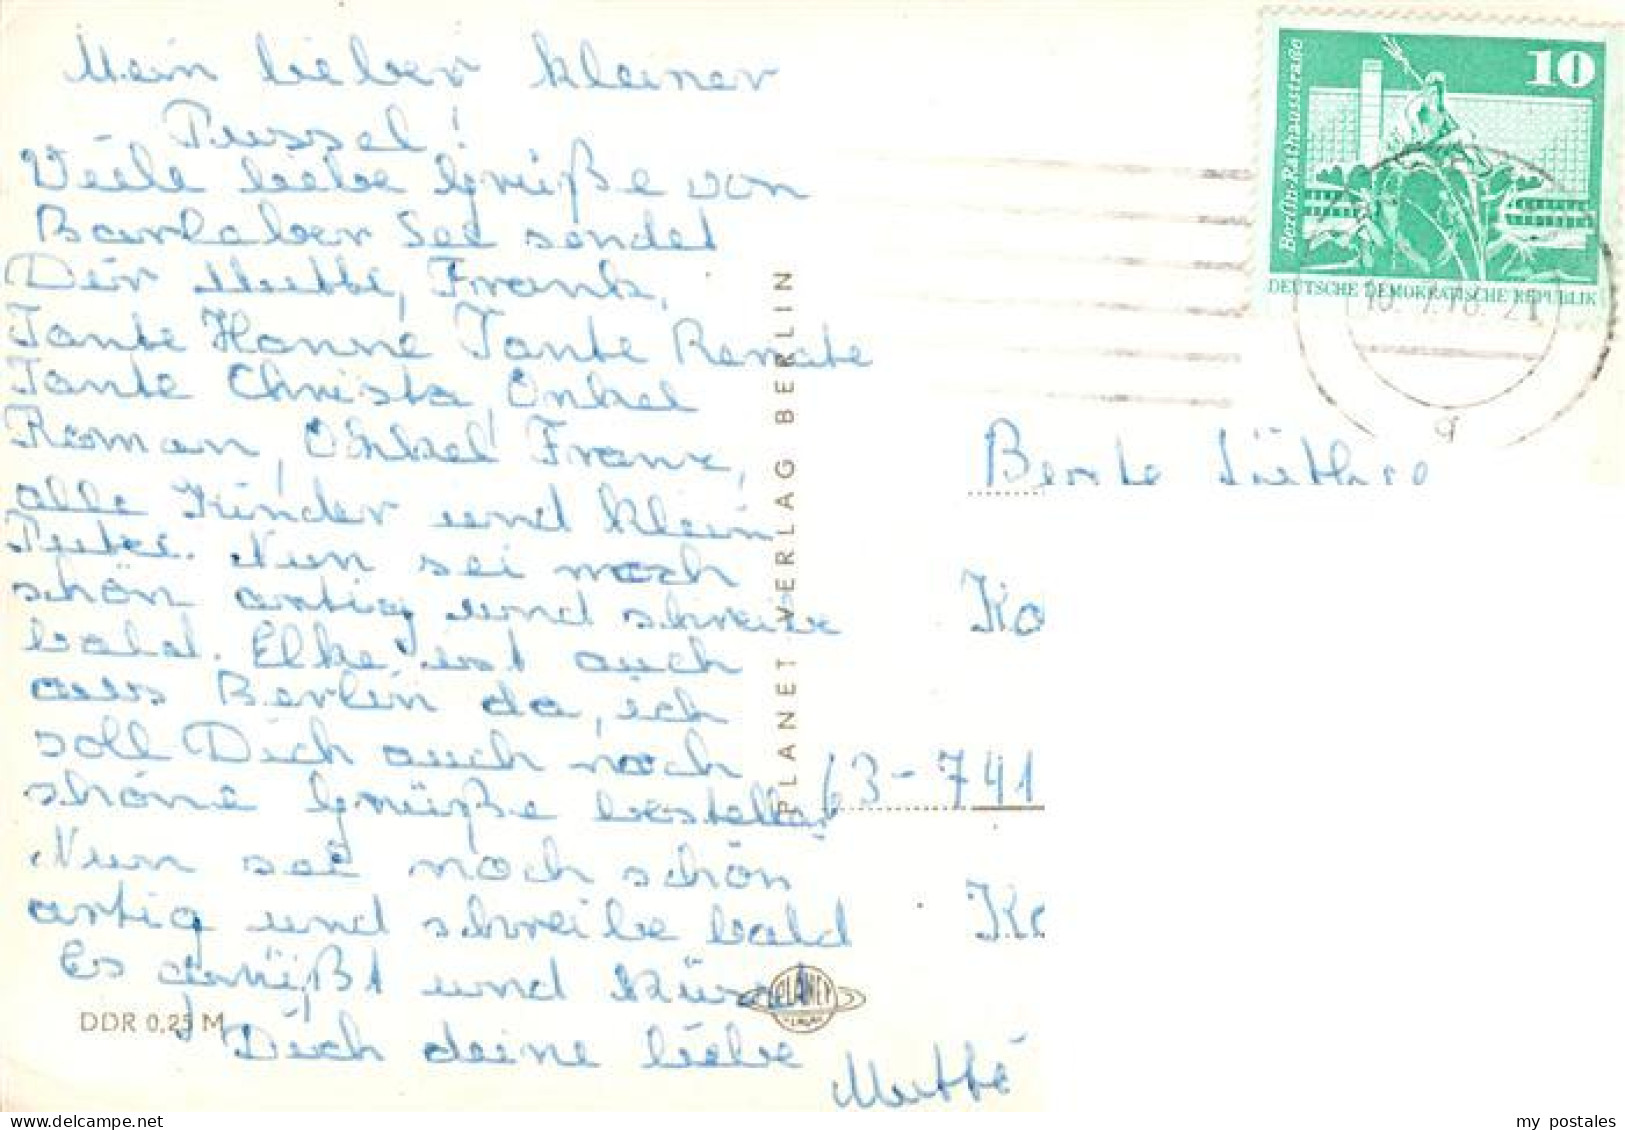 Mein lieber kleiner
Pussel!
Viele liebe Grüße von
Barleber See sendet
Dir Mutti, Frank,
Tante Hanne Tante Renate
Tante Christa, Onkel
Roman, Onkel Franz,
alle Kinder und klein
Nun sei noch
schön artig und schreibe
bald. Elke ist auch
aus Berlin da, ich
soll Dich auch noch
schöne Grüße bestellen
Nun sei noch schön
artig und schreibe bald
Es grüßt und küsst
Dich deine liebe
Mutti
DDR 0,25 M
PLANET VERLAG BERLIN
PLANET
VERLAG
10
Berlin-Rathausstraße
DEUTSCHE DEMOKRATISCHE REPUBLIK
21
g
Ko
63-741
my postales